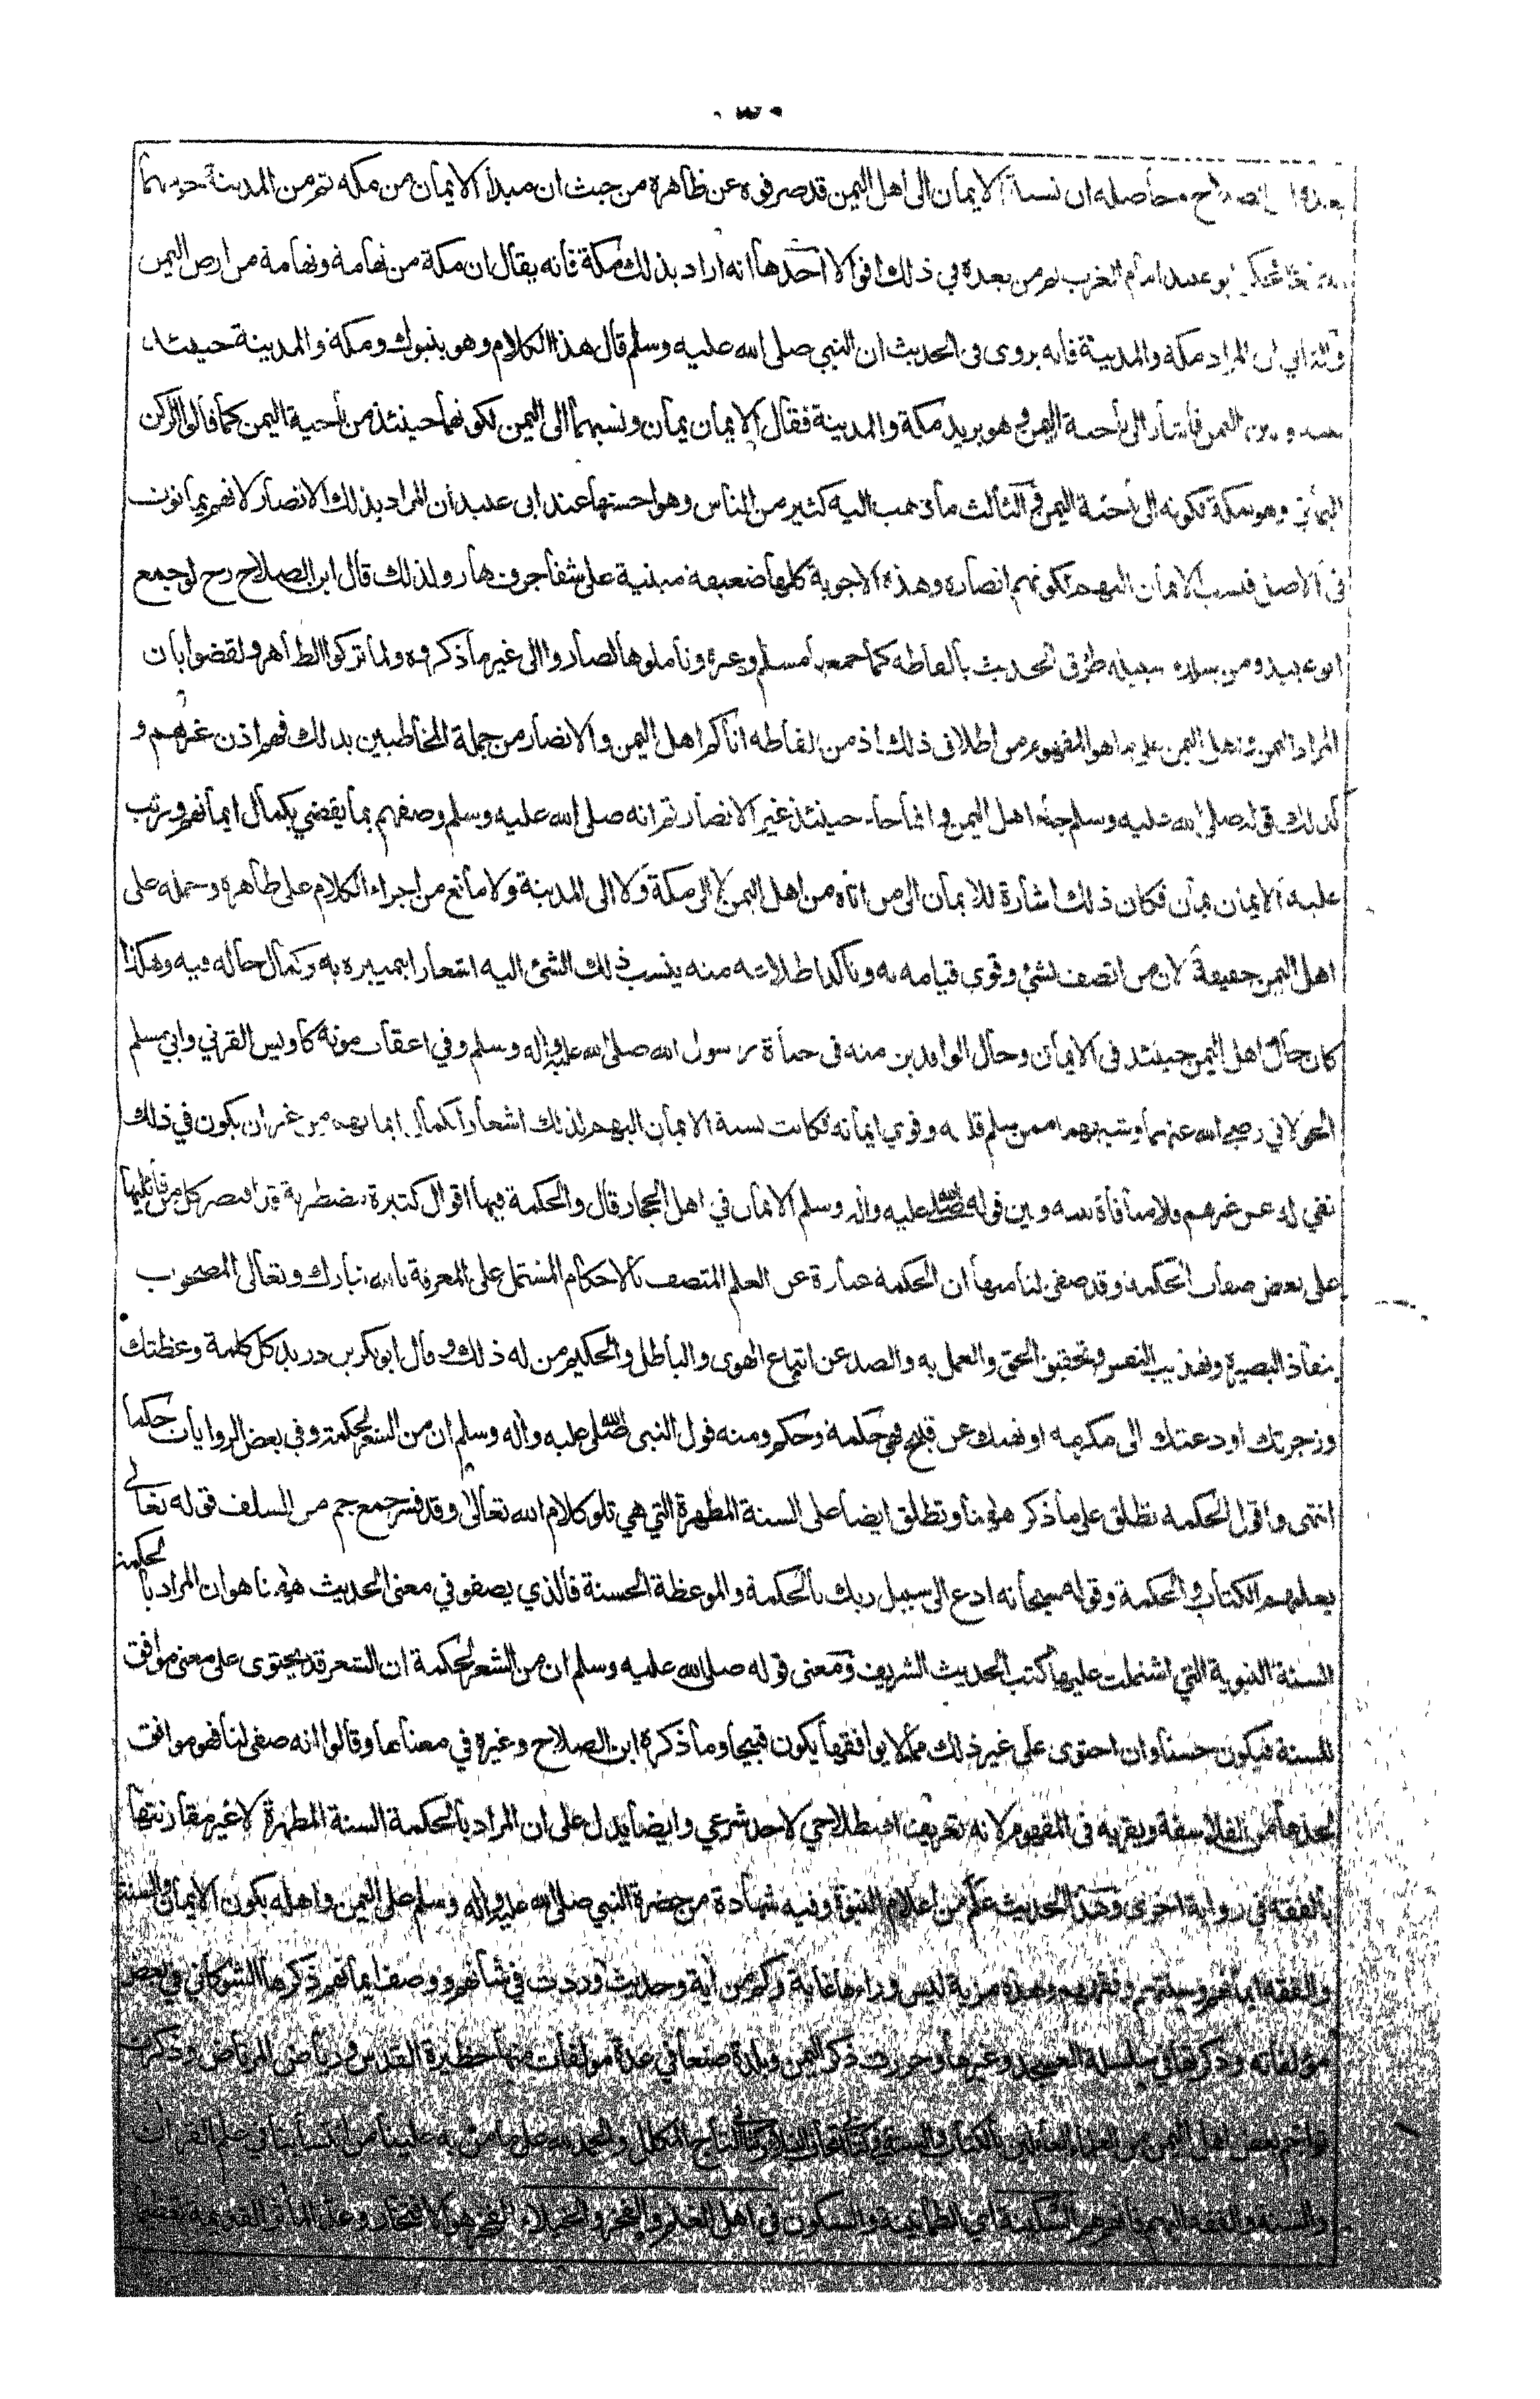 ٣٠
الصلاح وحاصله ان نسبة الايمان الى اهل اليمن قد صرفوه عن ظاهره من حيث ان مبدأ الايمان من مكة ثم من المدينة حرسهما
ابو عبيد امام الغرب ثم من بعده في ذلك اقوالا احدها انه اراد بذلك مكة فانه يقال ان مكة من تهامة وتهامة من ارض اليمن
والثاني ان المراد مكة والمدينة فانه يروى في الحديث ان النبي صلى الله عليه وسلم قال هذا الكلام وهو بتبوك ومكة والمدينة حينئذ
بينه وبين اليمن فاشار الى ناحية اليمن وهو يريد مكة والمدينة فقال الايمان يمان ونسبهما الى اليمن لكونهما حينئذ من ناحية اليمن كما قالوا الركن
اليماني وهو بمكة لكونه الى ناحية اليمن والثالث ما ذهب اليه كثير من الناس وهو احسنها عند ابي عبيد ان المراد بذلك الانصار لانهم يمانون
في الاصل فنسب الايمان اليهم لكونهم انصاره وهذه الاجوبة كلها ضعيفة مبنية على شفا جرف هار ولذلك قال ابن الصلاح رح لو جمع
ابو عبيد ومن سلك سبيله طرق الحديث بالفاظه كما جمعها مسلم وغيره وتأملوها لصاروا الى غير ما ذكروه ولما تركوا الظاهر ولقضوا بأن
المراد اليمن واهل اليمن على ما هو المفهوم من اطلاق ذلك اذ من الفاظه اتاكم اهل اليمن والانصار من جملة المخاطبين بذلك فهم اذن غيرهم و
كذلك قوله صلى الله عليه وسلم جاء اهل اليمن وانما جاء حينئذ غير الانصار ثم انه صلى الله عليه وسلم وصفهم بما يقضي بكمال ايمانهم ورتب
عليه الايمان يمان فكان ذلك اشارة للايمان الى من اتاه من اهل اليمن لا الى مكة ولا الى المدينة ولا مانع من اجراء الكلام على ظاهره وحمله على
اهل اليمن حقيقة لان من اتصف بشئ وقوي قيامه به وتأكد اطلاعه منه ينسب ذلك الشئ اليه اشعارا بتميزه به وكمال حاله فيه وهكذا
كان حال اهل اليمن حينئذ في الايمان وحال الوافدين منه في حياة رسول الله صلى الله عليه واله وسلم وفي اعقاب موته كاويس القرني وابي مسلم
الخولاني رضي الله عنهما وشبههما ممن سلم قلبه وقوي ايمانه فكانت نسبة الايمان اليهم لذلك اشعارا بكمال ايمانهم من غير ان يكون في ذلك
نفي له عن غيرهم ولا منافاة بينه وبين قوله صلى الله عليه واله وسلم الايمان في اهل الحجاز وقال والحكمة فيها اقوال كثيرة مضطربة قد اقتصر كل من قائليها
على بعض صفات الحكمة وقد صفي لنا منها ان الحكمة عبارة عن العلم المتصف بالاحكام المشتمل على المعرفة بالله تبارك وتعالى المصحوب
بنفاذ البصيرة وتهذيب النفس وتحقيق الحق والعمل به والصد عن اتباع الهوى والباطل والحكيم من له ذلك وقال ابو بكر بن دريد كل كلمة وعظتك
وزجرتك او دعتك الى مكرمة او نهتك عن قبيح فهي حكمة وحكم ومنه قول النبي صلى الله عليه واله وسلم ان من الشعر لحكمة وفي بعض الروايات حكما
انتهى واقول الحكمة تطلق على ما ذكر ههنا وتطلق ايضا على السنة المطهرة التي هي تلو كلام الله تعالى وقد فسر جمع جم من السلف قوله تعالى
يعلمهم الكتاب والحكمة وقوله سبحانه ادع الى سبيل ربك بالحكمة والموعظة الحسنة فالذي يصفو في معنى الحديث ههنا هو ان المراد بالحكمة
السنة النبوية التي اشتملت عليها كتب الحديث الشريف ومعنى قوله صلى الله عليه وسلم ان من الشعر لحكمة ان الشعر قد يحتوى على معنى موافق
للسنة فيكون حسنا وان احتوى على غير ذلك مما لا يوافقها يكون قبيحا وما ذكره ابن الصلاح وغيره في معناها وقالوا انه صفي لنا فهو موافق
لحدها من الفلاسفة ويقربه في المفهوم لانه تعريف اصطلاحي لا حد شرعي وايضا يدل على ان المراد بالحكمة السنة المطهرة لا غير مقارنتها
بالفقه في رواية اخرى وهذا الحديث علم من اعلام النبوة وفيه شهادة من حضرة النبي صلى الله عليه واله وسلم على اليمن واهله بكون الايمان والسنة
والفقه ايمانهم وسنتهم وفقههم وهذه مزية ليس وراءها غاية وكم من آية وحديث وردت في شأنهم ووصف ايمانهم ذكرها الشوكاني في بعض
مؤلفاته وذكرتها في سلسلة العسجد وغيرها وحررت ذكر اليمن وبلدة صنعا في عدة مؤلفات منها حظيرة القدس ورياض المرتاض وذكرت
تراجم بعض اهل اليمن من العلماء العاملين بالكتاب والسنة في كتاب اتحاف النبلاء وكتاب التاج المكلل والحمد لله على ما من به علينا من انتسابنا في علم القران
والسنة والفقه اليهم السكينة اي الطمأنينة والسكون في اهل الغنم والفخر والخيلاء الفخر هو الافتخار وعد المآثر القديمة تعظيما